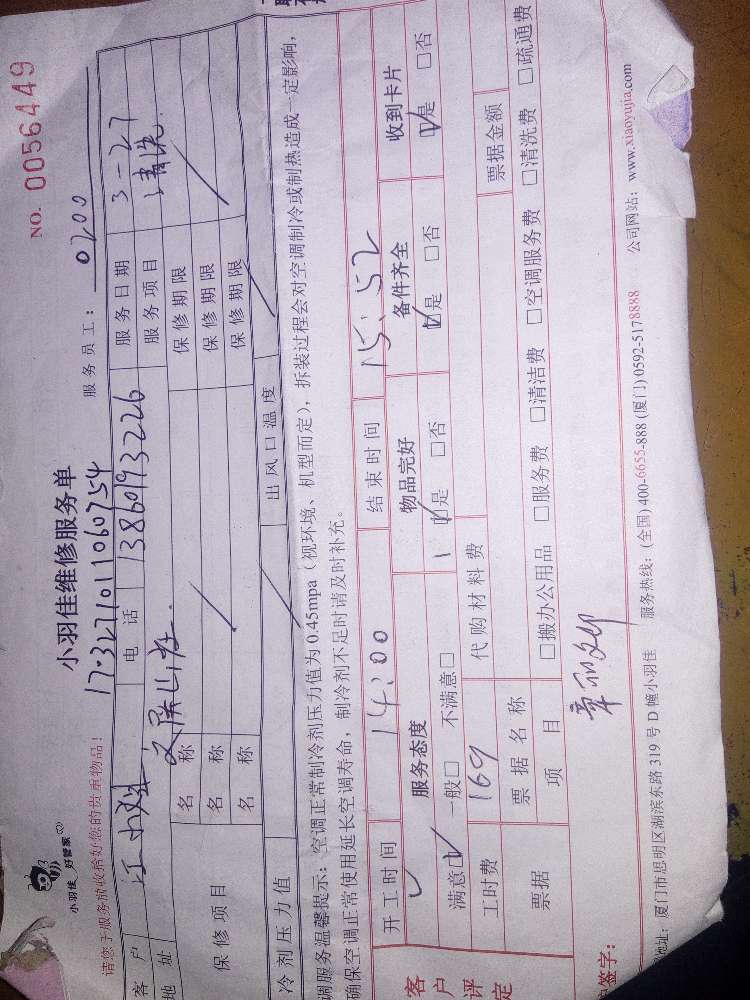 NO. 0056449
小羽佳 好管家
小羽佳维修服务单
17.327101106 0754
服务员工： 0200
请您于服务前收拾好您的贵重物品！
客户 电话 13860193226 服务日期 3-27
地址 服务项目 清洗
保修项目 名称 保修期限
名称 保修期限
名称 保修期限
冷剂压力值 出风口温度
调服务温馨提示：空调正常制冷剂压力值为0.45mpa（视环境、机型而定），拆装过程会对空调制冷或制热造成一定影响，
确保空调正常使用延长空调寿命，制冷剂不足时请及时补充。
开工时间 14:00 结束时间 15:52
客户评定 服务态度 物品完好 备件齐全 收到卡片
满意☑ 一般□ 不满意□ ☑是 □否 ☑是 □否 ☑是 □否
工时费 169 代购材料费
票据 票据名称 票据金额
项目 □搬办公用品 □服务费 □清洁费 □空调服务费 □清洗费 □疏通费
签字：
地址：厦门市思明区湖滨东路319号D幢小羽佳 服务热线：(全国)400-6655-888 (厦门)0592-5178888 公司网站：www.xiaoyujia.com